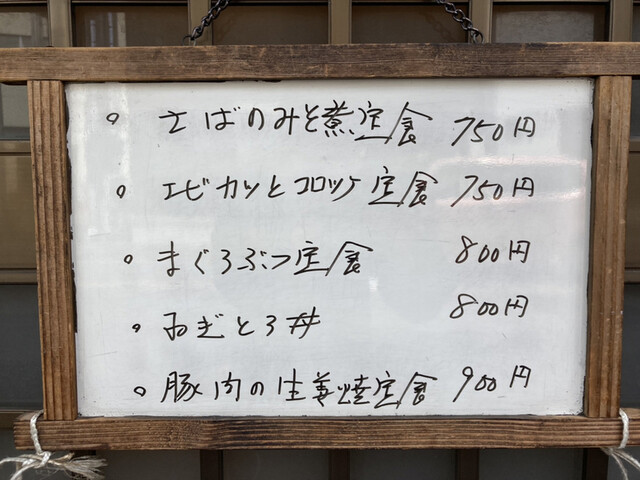 。さばのみそ煮定食 750円
。エビカツとコロッケ定食 750円
。まぐろぶつ定食 800円
。ねぎとろ丼 800円
。豚肉の生姜焼定食 900円